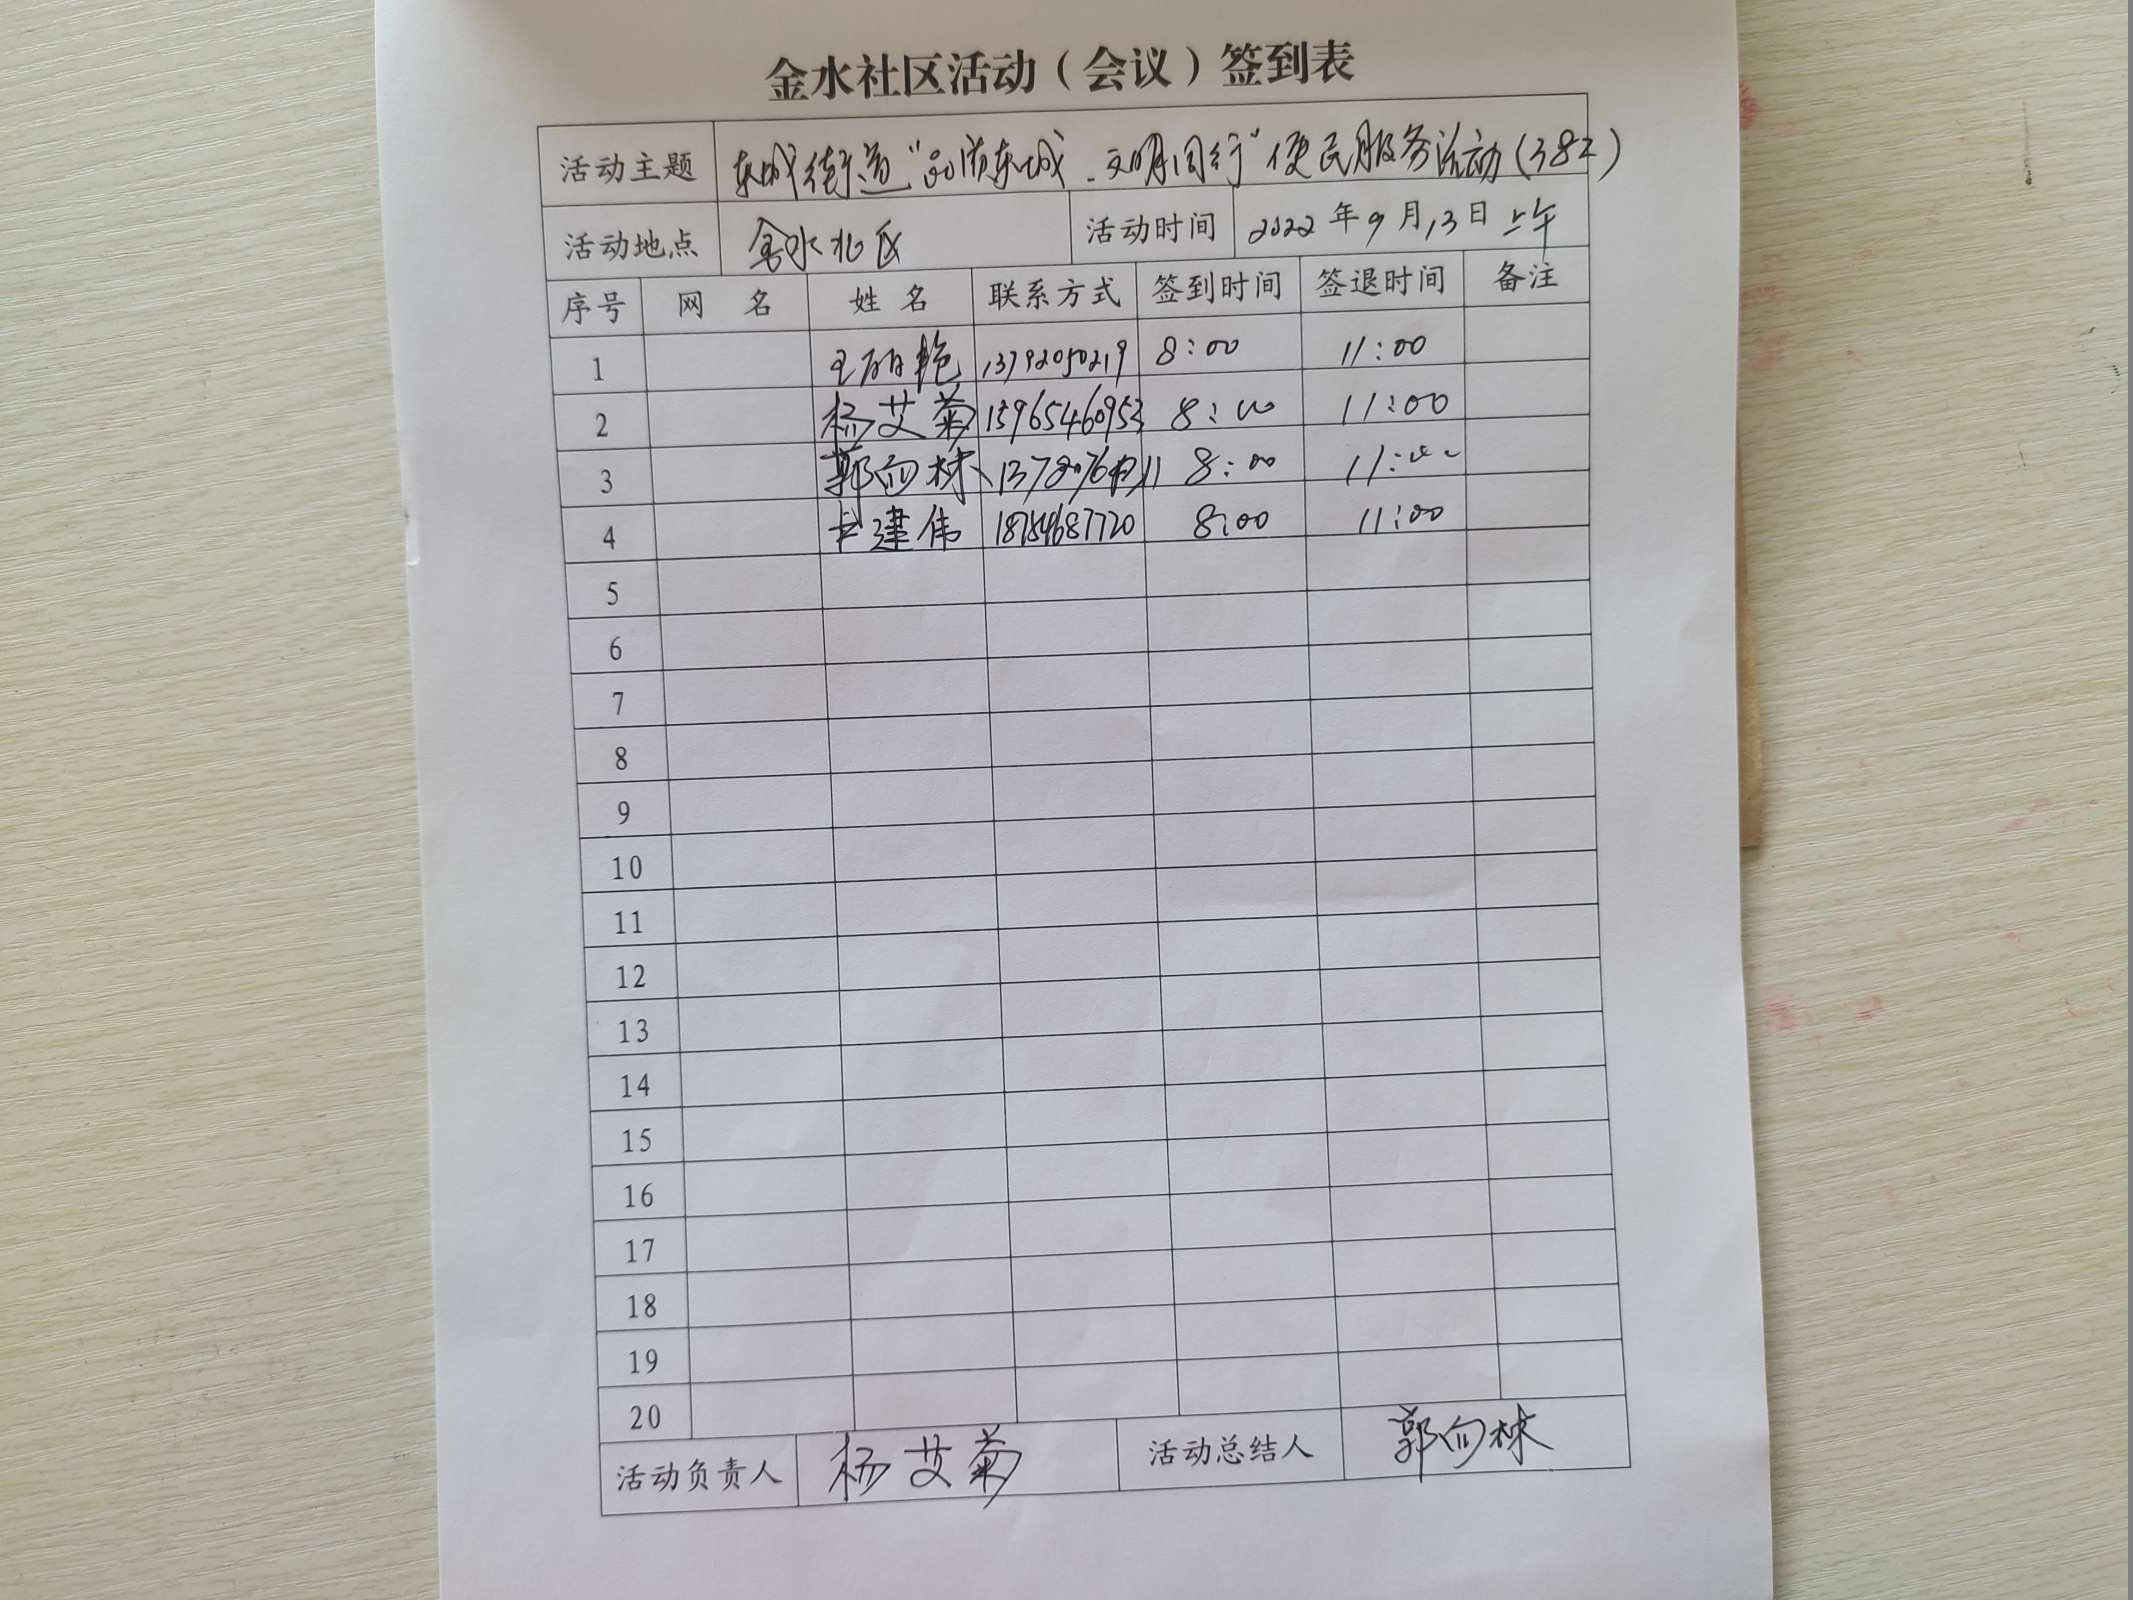 金水社区活动（会议）签到表
活动主题 东城街道“品质东城、文明同行”便民服务活动(382)
活动地点 金水北区 活动时间 2022年9月13日上午
序号 网 名 姓 名 联系方式 签到时间 签退时间 备注
1 王丽艳 13792050219 8:00 11:00
2 杨艾菊 15965460953 8:00 11:00
3 郭向林 8:00 11:00
4 卞建伟 18754687720 8:00 11:00
5
6
7
8
9
10
11
12
13
14
15
16
17
18
19
20
活动负责人 杨艾菊 活动总结人 郭向林